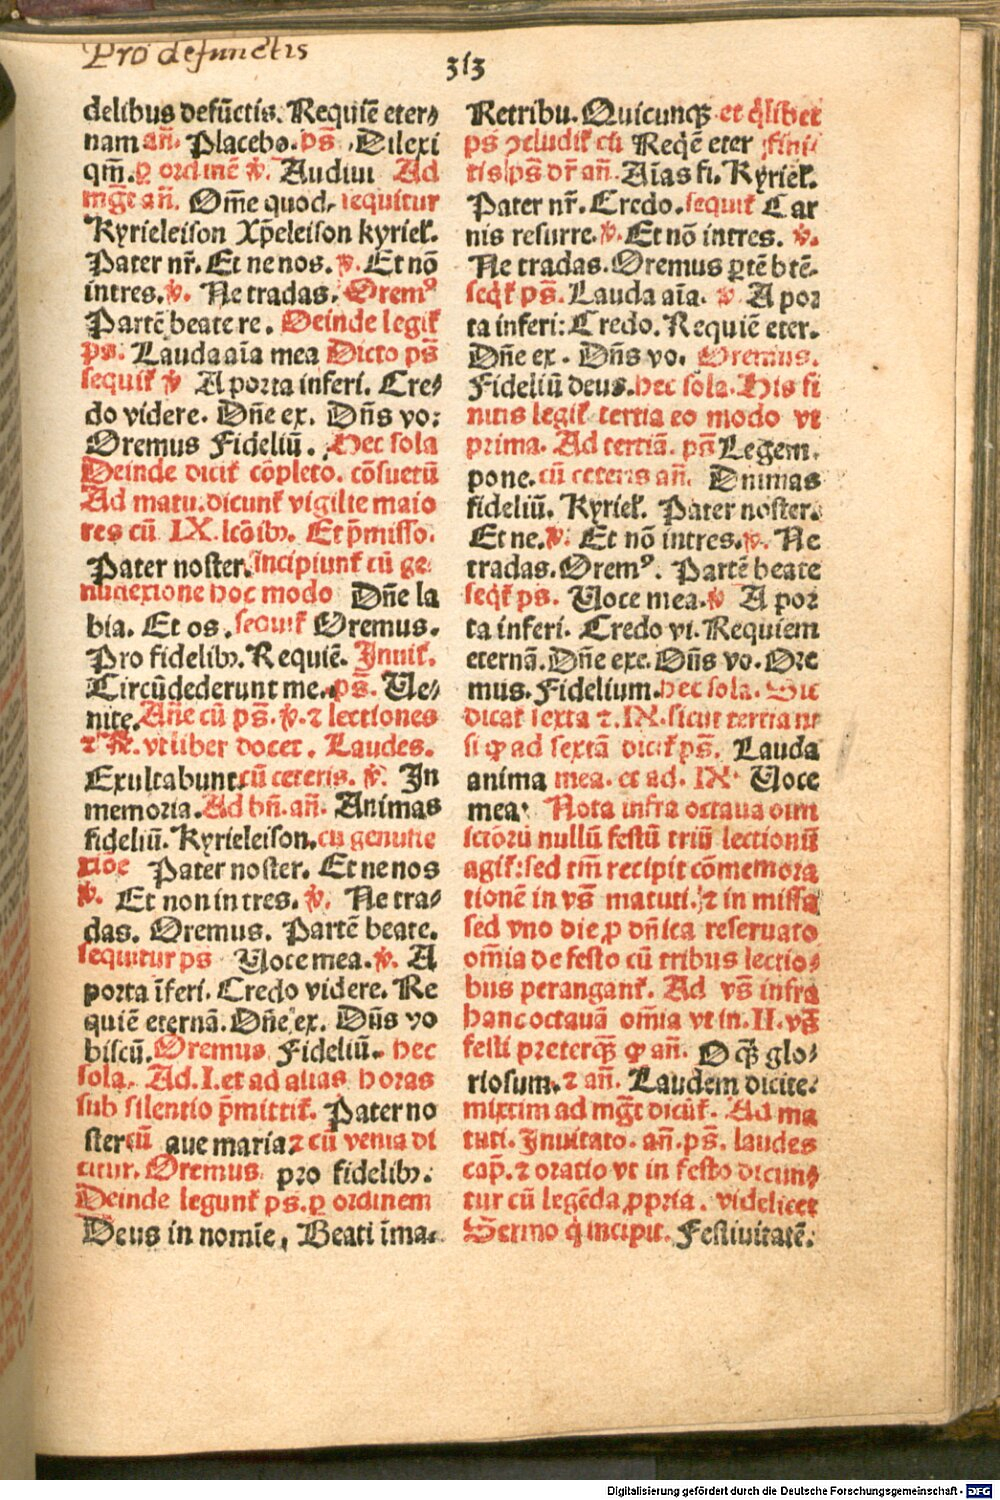 Pro defunctis
313
delibus defūctis. Requiē eter⸗
nam añ. Placebo. ps̄. Dilexi
qm̄. ꝑ ordinē ℣. Audiui Ad
mg̃t añ. Om̄e quod. sequitur
Kyrieleison Xp̄eleison kyriel̃.
Pater nr̃. Et ne nos. ℣. Et nō
intres. ℣. Ne tradas. Oremꝰ
Partē beate re. Deinde legit̃
ps̄. Lauda aīa mea Dicto ps̄
sequit̃ ℣ A porta inferi. Cre⸗
do videre. Dn̄e ex. Dn̄s vo:
Oremus Fideliū. hec sola
Deinde dicit̃ cōpleto. cōsuetū
Ad matu. dicunt̃ vigilie maio
res cū IX. lcōibꝫ. Et p̄misso.
Pater noster. Incipiunt̃ cū ge⸗
nuflexione hoc modo Dn̄e la
bia. Et os. sequit̃ Oremus.
Pro fidelibꝫ. Requiē. Inuit̃.
Circūdederunt me. ps̄. Ue⸗
nite. Añe cū ps̄. ℣. ⁊ lectiones
⁊ ℟. vt liber docet. Laudes.
Exultabunt. cū ceteris. ℣. In
memoria. Ad bn̄. añ. Animas
fideliū. Kyrieleison. cū genufle
xiōe Pater noster. Et ne nos
℣. Et non intres. ℣. Ne tra⸗
das. Oremus. Partē beate.
sequitur ps Uoce mea. ℣. A
porta īferi. Credo videre. Re
quiē eternā. Dn̄e ex. Dn̄s vo
biscū. Oremus Fideliū. hec
sola. Ad. I. et ad alias horas
sub silentio p̄mittit̃. Pater no
ster cū aue maria ⁊ cū venia di
citur. Oremus pro fidelibꝫ.
Deinde legunt̃ ps. ꝑ ordinem
Deus in nomīe, Beati īma⸗
Retribu. Quicunqꝫ et q̄libet
ps̄ ꝯcludit̃ cū Reqē eter fini⸗
tis ps̄ dr̃ añ. Aīas fi. Kyriel̃.
Pater nr̃. Credo. sequit̃ Car
nis resurre. ℣. Et nō intres. ℣.
Ne tradas. Oremus ꝑtē btē.
seqt̃ ps̄. Lauda aīa. ℣ A por
ta inferi: Credo. Requiē eter.
Dn̄e ex. Dn̄s vo. Oremus.
Fideliū deus. hec sola. His fi
nitis legit̃ tertia eo modo vt
prima. Ad tertiā. ps̄ Legem.
pone. cū ceteris añ. Animas
fideliū. Kyriel̃. Pater noster.
Et ne. ℣. Et nō intres. ℣. Ne
tradas. Oremꝰ. Partē beate
seqt̃ ps. Uoce mea. ℣ A por
ta inferi. Credo vi. Requiem
eternā. Dn̄e exe. Dn̄s vo. Ore
mus. Fidelium. hec sola. Sic
dicat̃ sexta ⁊. IX. sicut tertia ni
si ꝙ ad sextā dicit̃ ps̄. Lauda
anima mea. et ad. IX. Uoce
mea. Nota infra octaua oīm
sctōrū nullū festū triū lectionū
agit̃: sed tm̄ recipit cōmemora
tionē in vs̄ matuti. ⁊ in missa
sed vno die ꝓ dn̄ica reseruato
om̄ia de festo cū tribus lectio⸗
bus perangant̃. Ad vs̄ infra
hanc octauā om̄ia vt in. II. vs̄
festi preterqꝫ ꝙ añ. O qꝫ glo⸗
riosum. ⁊ añ. Laudem dicite.
mixtim ad mg̃t dicūt̃. Ad ma
tuti. Inuitato. añ. ps̄. laudes
cap̄. ⁊ oratio vt in festo dicun⸗
tur cū legēda ꝓpria. videlicet
Sermo q̇ incipit. Festiuitatē.
Digitalisierung gefördert durch die Deutsche Forschungsgemeinschaft - DFG